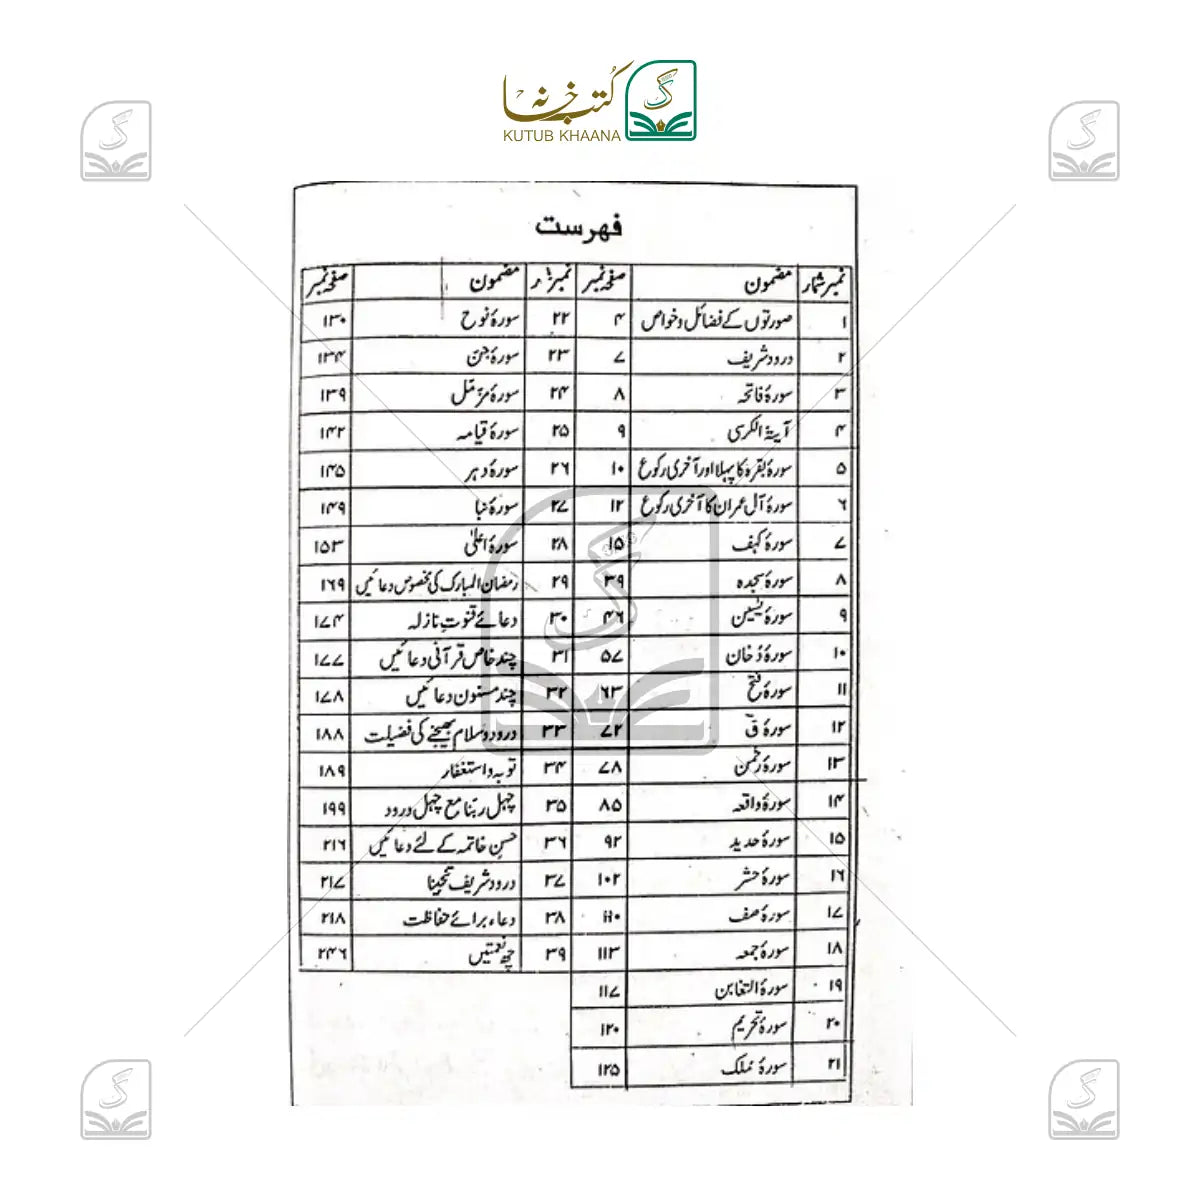 کتب خانہ
KUTUB KHAANA
فہرست
نمبر شمار مضمون صفحہ نمبر
۱ صورتوں کے فضائل و خواص ۴
۲ درود شریف ۷
۳ سورۂ فاتحہ ۸
۴ آیۃ الکرسی ۹
۵ سورۂ بقرہ کا پہلا اور آخری رکوع ۱۰
۶ سورۂ آل عمران کا آخری رکوع ۱۲
۷ سورۂ کہف ۱۵
۸ سورۂ سجدہ ۳۹
۹ سورۂ یٰسین ۴۶
۱۰ سورۂ دُخان ۵۷
۱۱ سورۂ فتح ۶۳
۱۲ سورۂ قٓ ۷۲
۱۳ سورۂ رحمٰن ۷۸
۱۴ سورۂ واقعہ ۸۵
۱۵ سورۂ حدید ۹۲
۱۶ سورۂ حشر ۱۰۲
۱۷ سورۂ صف ۱۱۰
۱۸ سورۂ جمعہ ۱۱۳
۱۹ سورۂ التغابن ۱۱۷
۲۰ سورۂ تحریم ۱۲۰
۲۱ سورۂ ملک ۱۲۵
مضمون صفحہ نمبر
۲۲ سورۂ نوح ۱۳۰
۲۳ سورۂ جن ۱۳۴
۲۴ سورۂ مزّمّل ۱۳۹
۲۵ سورۂ قیامہ ۱۴۲
۲۶ سورۂ دہر ۱۴۵
۲۷ سورۂ نبا ۱۴۹
۲۸ سورۂ اعلیٰ ۱۵۳
۲۹ رمضان المبارک کی مخصوص دعائیں ۱۶۹
۳۰ دعائے قنوتِ نازلہ ۱۷۴
۳۱ چند خاص قرآنی دعائیں ۱۷۷
۳۲ چند مسنون دعائیں ۱۷۸
۳۳ درود و سلام بھیجنے کی فضیلت ۱۸۸
۳۴ توبہ و استغفار ۱۸۹
۳۵ چہل ربنا مع چہل درود ۱۹۹
۳۶ حسنِ خاتمہ کے لئے دعائیں ۲۱۶
۳۷ درود شریف تحینا ۲۱۷
۳۸ دعاء برائے حفاظت ۲۱۸
۳۹ چھ نعمتیں ۲۴۶